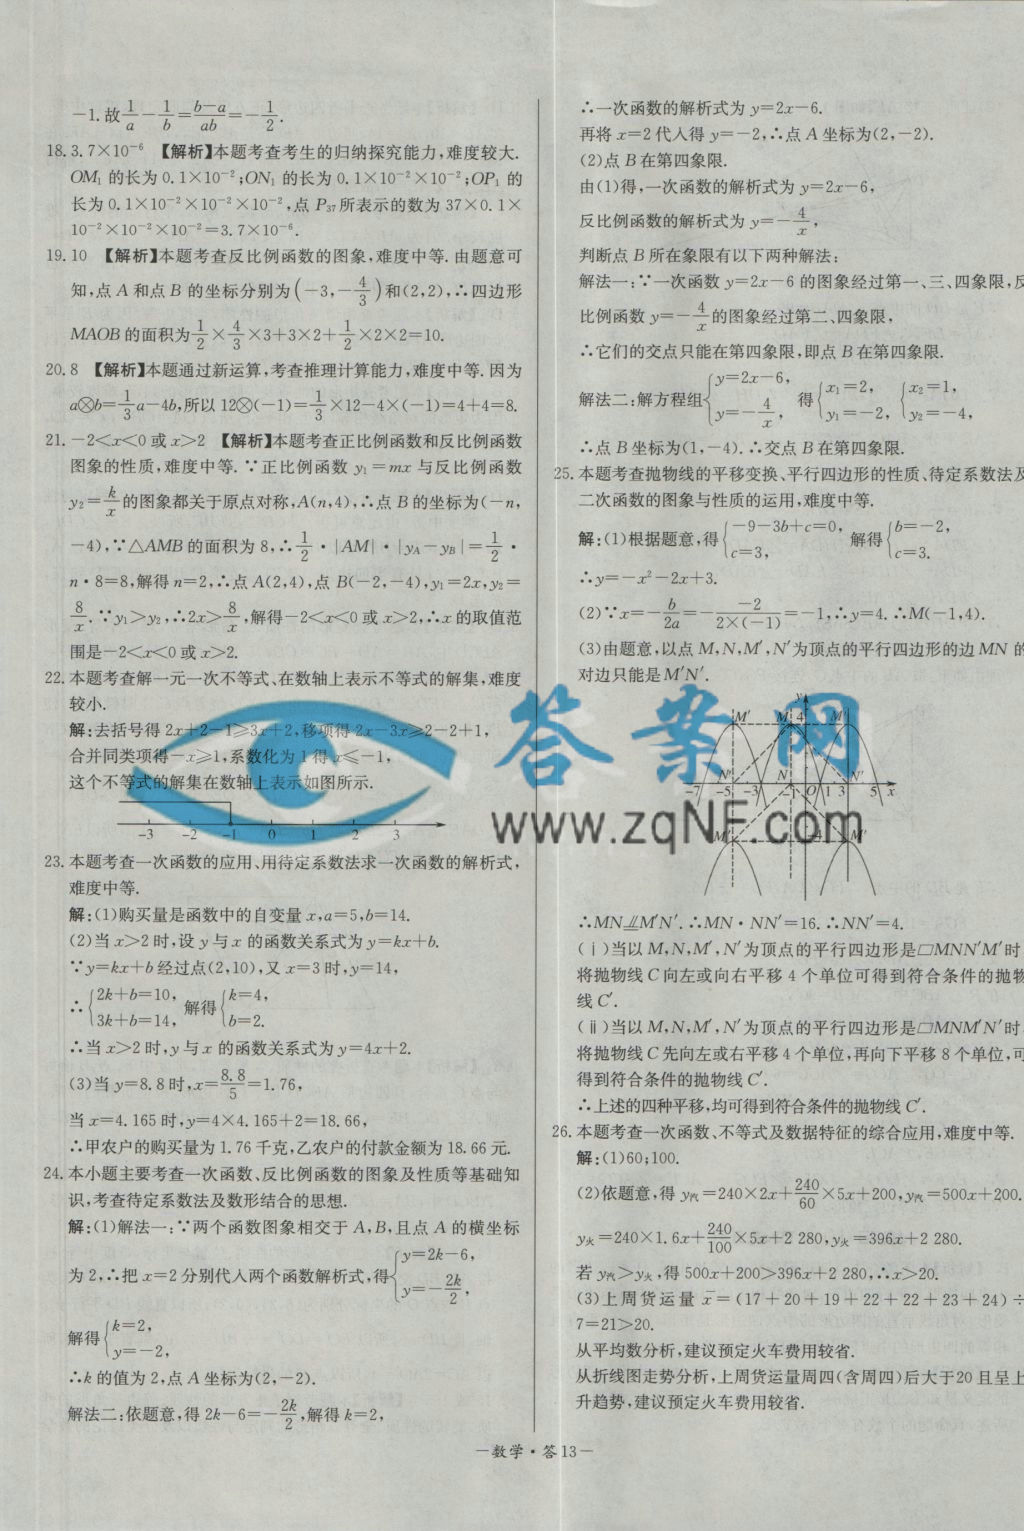 -1.故1/a-1/b=(b-a)/ab=-1/2.
18.3.7×10⁻⁶ 【解析】本题考查考生的归纳探究能力,难度较大.
OM₁的长为0.1×10⁻²;ON₁的长为0.1×10⁻²×10⁻²;OP₁的
长为0.1×10⁻²×10⁻²×10⁻²,点P₃₇所表示的数为37×0.1×
10⁻²×10⁻²×10⁻²=3.7×10⁻⁶.
19.10 【解析】本题考查反比例函数的图象,难度中等.由题意可
知,点A和点B的坐标分别为(-3,-4/3)和(2,2),∴四边形
MAOB的面积为1/2×4/3×3+3×2+1/2×2×2=10.
20.8 【解析】本题通过新运算,考查推理计算能力,难度中等.因为
a⊗b=1/3a-4b,所以12⊗(-1)=1/3×12-4×(-1)=4+4=8.
21.-2<x<0或x>2 【解析】本题考查正比例函数和反比例函数
图象的性质,难度中等.∵正比例函数y₁=mx与反比例函数
y₂=k/x的图象都关于原点对称,A(n,4),∴点B的坐标为(-n,
-4),∵△AMB的面积为8,∴1/2·|AM|·|y_A-y_B|=1/2·
n·8=8,解得n=2,∴点A(2,4),点B(-2,-4),y₁=2x,y₂=
8/x.∵y₁>y₂,∴2x>8/x,解得-2<x<0或x>2,∴x的取值范
围是-2<x<0或x>2.
22.本题考查解一元一次不等式、在数轴上表示不等式的解集,难度
较小.
解:去括号得2x+2-1≥3x+2,移项得2x-3x≥2-2+1,
合并同类项得-x≥1,系数化为1得x≤-1,
这个不等式的解集在数轴上表示如图所示.
-3 -2 -1 0 1 2 3
23.本题考查一次函数的应用、用待定系数法求一次函数的解析式,
难度中等.
解:(1)购买量是函数中的自变量x,a=5,b=14.
(2)当x>2时,设y与x的函数关系式为y=kx+b.
∵y=kx+b经过点(2,10),又x=3时,y=14,
∴{2k+b=10, 3k+b=14, 解得{k=4, b=2.
∴当x>2时,y与x的函数关系式为y=4x+2.
(3)当y=8.8时,x=8.8/5=1.76,
当x=4.165时,y=4×4.165+2=18.66,
∴甲农户的购买量为1.76千克,乙农户的付款金额为18.66元.
24.本小题主要考查一次函数、反比例函数的图象及性质等基础知
识,考查待定系数法及数形结合的思想.
解:(1)解法一:∵两个函数图象相交于A,B,且点A的横坐标
为2,∴把x=2分别代入两个函数解析式,得{y=2k-6, y=-2k/2,
解得{k=2, y=-2,
∴k的值为2,点A坐标为(2,-2).
解法二:依题意,得2k-6=-2k/2,解得k=2,
∴一次函数的解析式为y=2x-6.
再将x=2代人得y=-2,∴点A坐标为(2,-2).
(2)点B在第四象限.
由(1)得,一次函数的解析式为y=2x-6,
反比例函数的解析式为y=-4/x,
判断点B所在象限有以下两种解法:
解法一:∵一次函数y=2x-6的图象经过第一、三、四象限,反
比例函数y=-4/x的图象经过第二、四象限,
∴它们的交点只能在第四象限,即点B在第四象限.
解法二:解方程组{y=2x-6, y=-4/x, 得{x₁=2, y₁=-2, {x₂=1, y₂=-4,
∴点B坐标为(1,-4).∴交点B在第四象限.
25.本题考查抛物线的平移变换、平行四边形的性质、待定系数法及
二次函数的图象与性质的运用,难度中等.
解:(1)根据题意,得{-9-3b+c=0, c=3, 解得{b=-2, c=3.
∴y=-x²-2x+3.
(2)∵x=-b/2a=-(-2)/(2×(-1))=-1,∴y=4.∴M(-1,4).
(3)由题意,以点M,N,M′,N′为顶点的平行四边形的边MN的
对边只能是M′N′.
y
M′ M 4 M′
N′ N N′
-7 -5 -3 -1 O 1 3 5 x
M′ -4 M′
答案网
www.zqNF.com
∴MN⫽M′N′.∴MN·NN′=16.∴NN′=4.
(ⅰ)当以M,N,M′,N′为顶点的平行四边形是▱MNN′M′时,
将抛物线C向左或向右平移4个单位可得到符合条件的抛物
线C′.
(ⅱ)当以M,N,M′,N′为顶点的平行四边形是▱MNM′N′时,
将抛物线C先向左或右平移4个单位,再向下平移8个单位,可
得到符合条件的抛物线C′.
∴上述的四种平移,均可得到符合条件的抛物线C′.
26.本题考查一次函数、不等式及数据特征的综合应用,难度中等.
解:(1)60;100.
(2)依题意,得y汽=240×2x+240/60×5x+200,y汽=500x+200.
y火=240×1.6x+240/100×5x+2 280,y火=396x+2 280.
若y汽>y火,得500x+200>396x+2 280,∴x>20.
(3)上周货运量x̄=(17+20+19+22+22+23+24)÷
7=21>20.
从平均数分析,建议预定火车费用较省.
从折线图走势分析,上周货运量周四(含周四)后大于20且呈上
升趋势,建议预定火车费用较省.
-数学·答13-